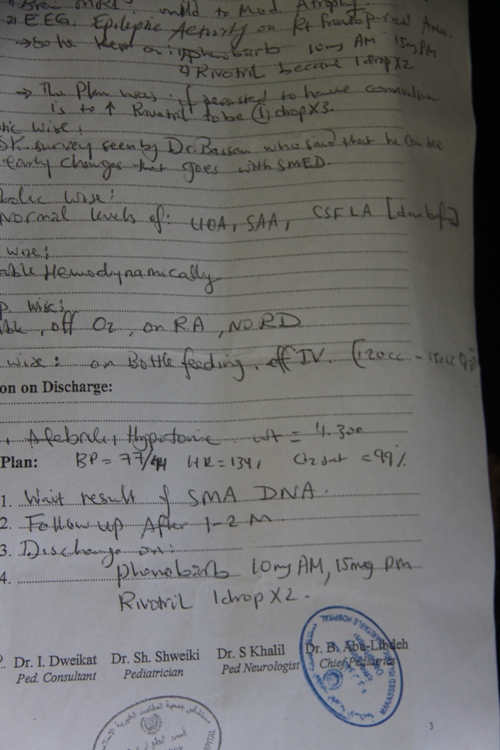 mild to Mod. Atrophy
2) EEG. Epileptic Activity on Rt Frontoparietal Area.
→ So he kept on: phenobarb 10mg AM 15mg PM
Rivotril became 1 drop X2
→ The Plan was if persisted to have convulsion
is to ↑ Rivotril to be (1) drop X3.
tic wise:
SK. survey seen by Dr. Bassan who said that he can see
early changes that goes with SMED.
bolic wise:
Normal levels of: UOA, SAA, CSF LA
wise:
able Hemodynamically
p. wise:
able, off O2, on RA, NO RD
wise: on Bottle feeding, off IV. (120cc -
on on Discharge:
, Afebrile, Hypotonic wt = 4.300
Plan: BP = 77/44 HR = 134, O2 sat = 99%
1. Wait result of SMA DNA.
2. Follow up After 1-2 M.
3. Discharge on:
4. phenobarb 10mg AM, 15mg pm
Rivotril 1 drop X2.
Dr. I. Dweikat Dr. Sh. Shweiki Dr. S Khalil Dr. B. Abu-Libdeh
Ped. Consultant Pediatrician Ped Neurologist Chief Pediatrics
MAKASSED HOSPITAL
3